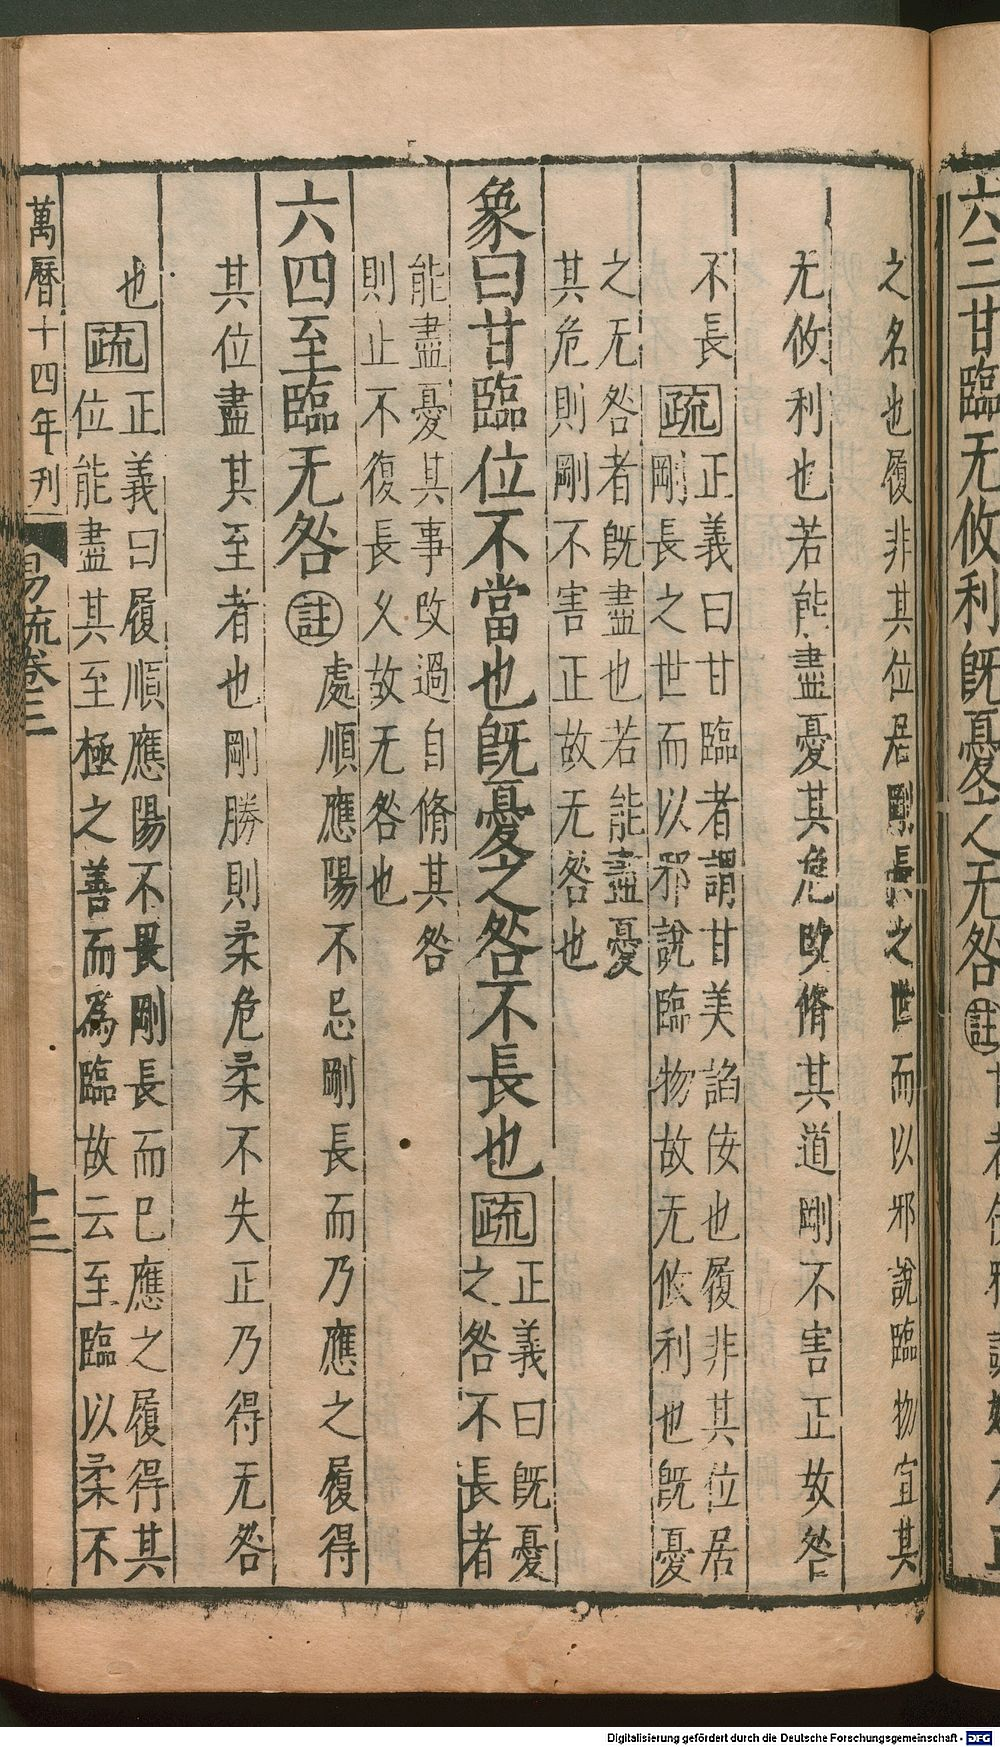 六三甘臨无攸利旣憂之无咎㊟
之名也履非其位居剛長之世而以邪說臨物宜其
无攸利也若能盡憂其危改脩其道剛不害正故咎
不長疏正義曰甘臨者謂甘美謟佞也履非其位居
剛長之世而以邪說臨物故无攸利也旣憂
之无咎者旣盡也若能盡憂
其危則剛不害正故无咎也
象曰甘臨位不當也旣憂之咎不長也疏正義曰旣憂
之咎不長者
能盡憂其事改過自脩其咎
則止不復長久故无咎也
六四至臨无咎註處順應陽不忌剛長而乃應之履得
其位盡其至者也剛勝則柔危柔不失正乃得无咎
也疏正義曰履順應陽不畏剛長而巳應之履得其
位能盡其至極之善而爲臨故云至臨以柔不
萬曆十四年刊
易疏卷三
十三
Digitalisierung gefördert durch die Deutsche Forschungsgemeinschaft - DFG